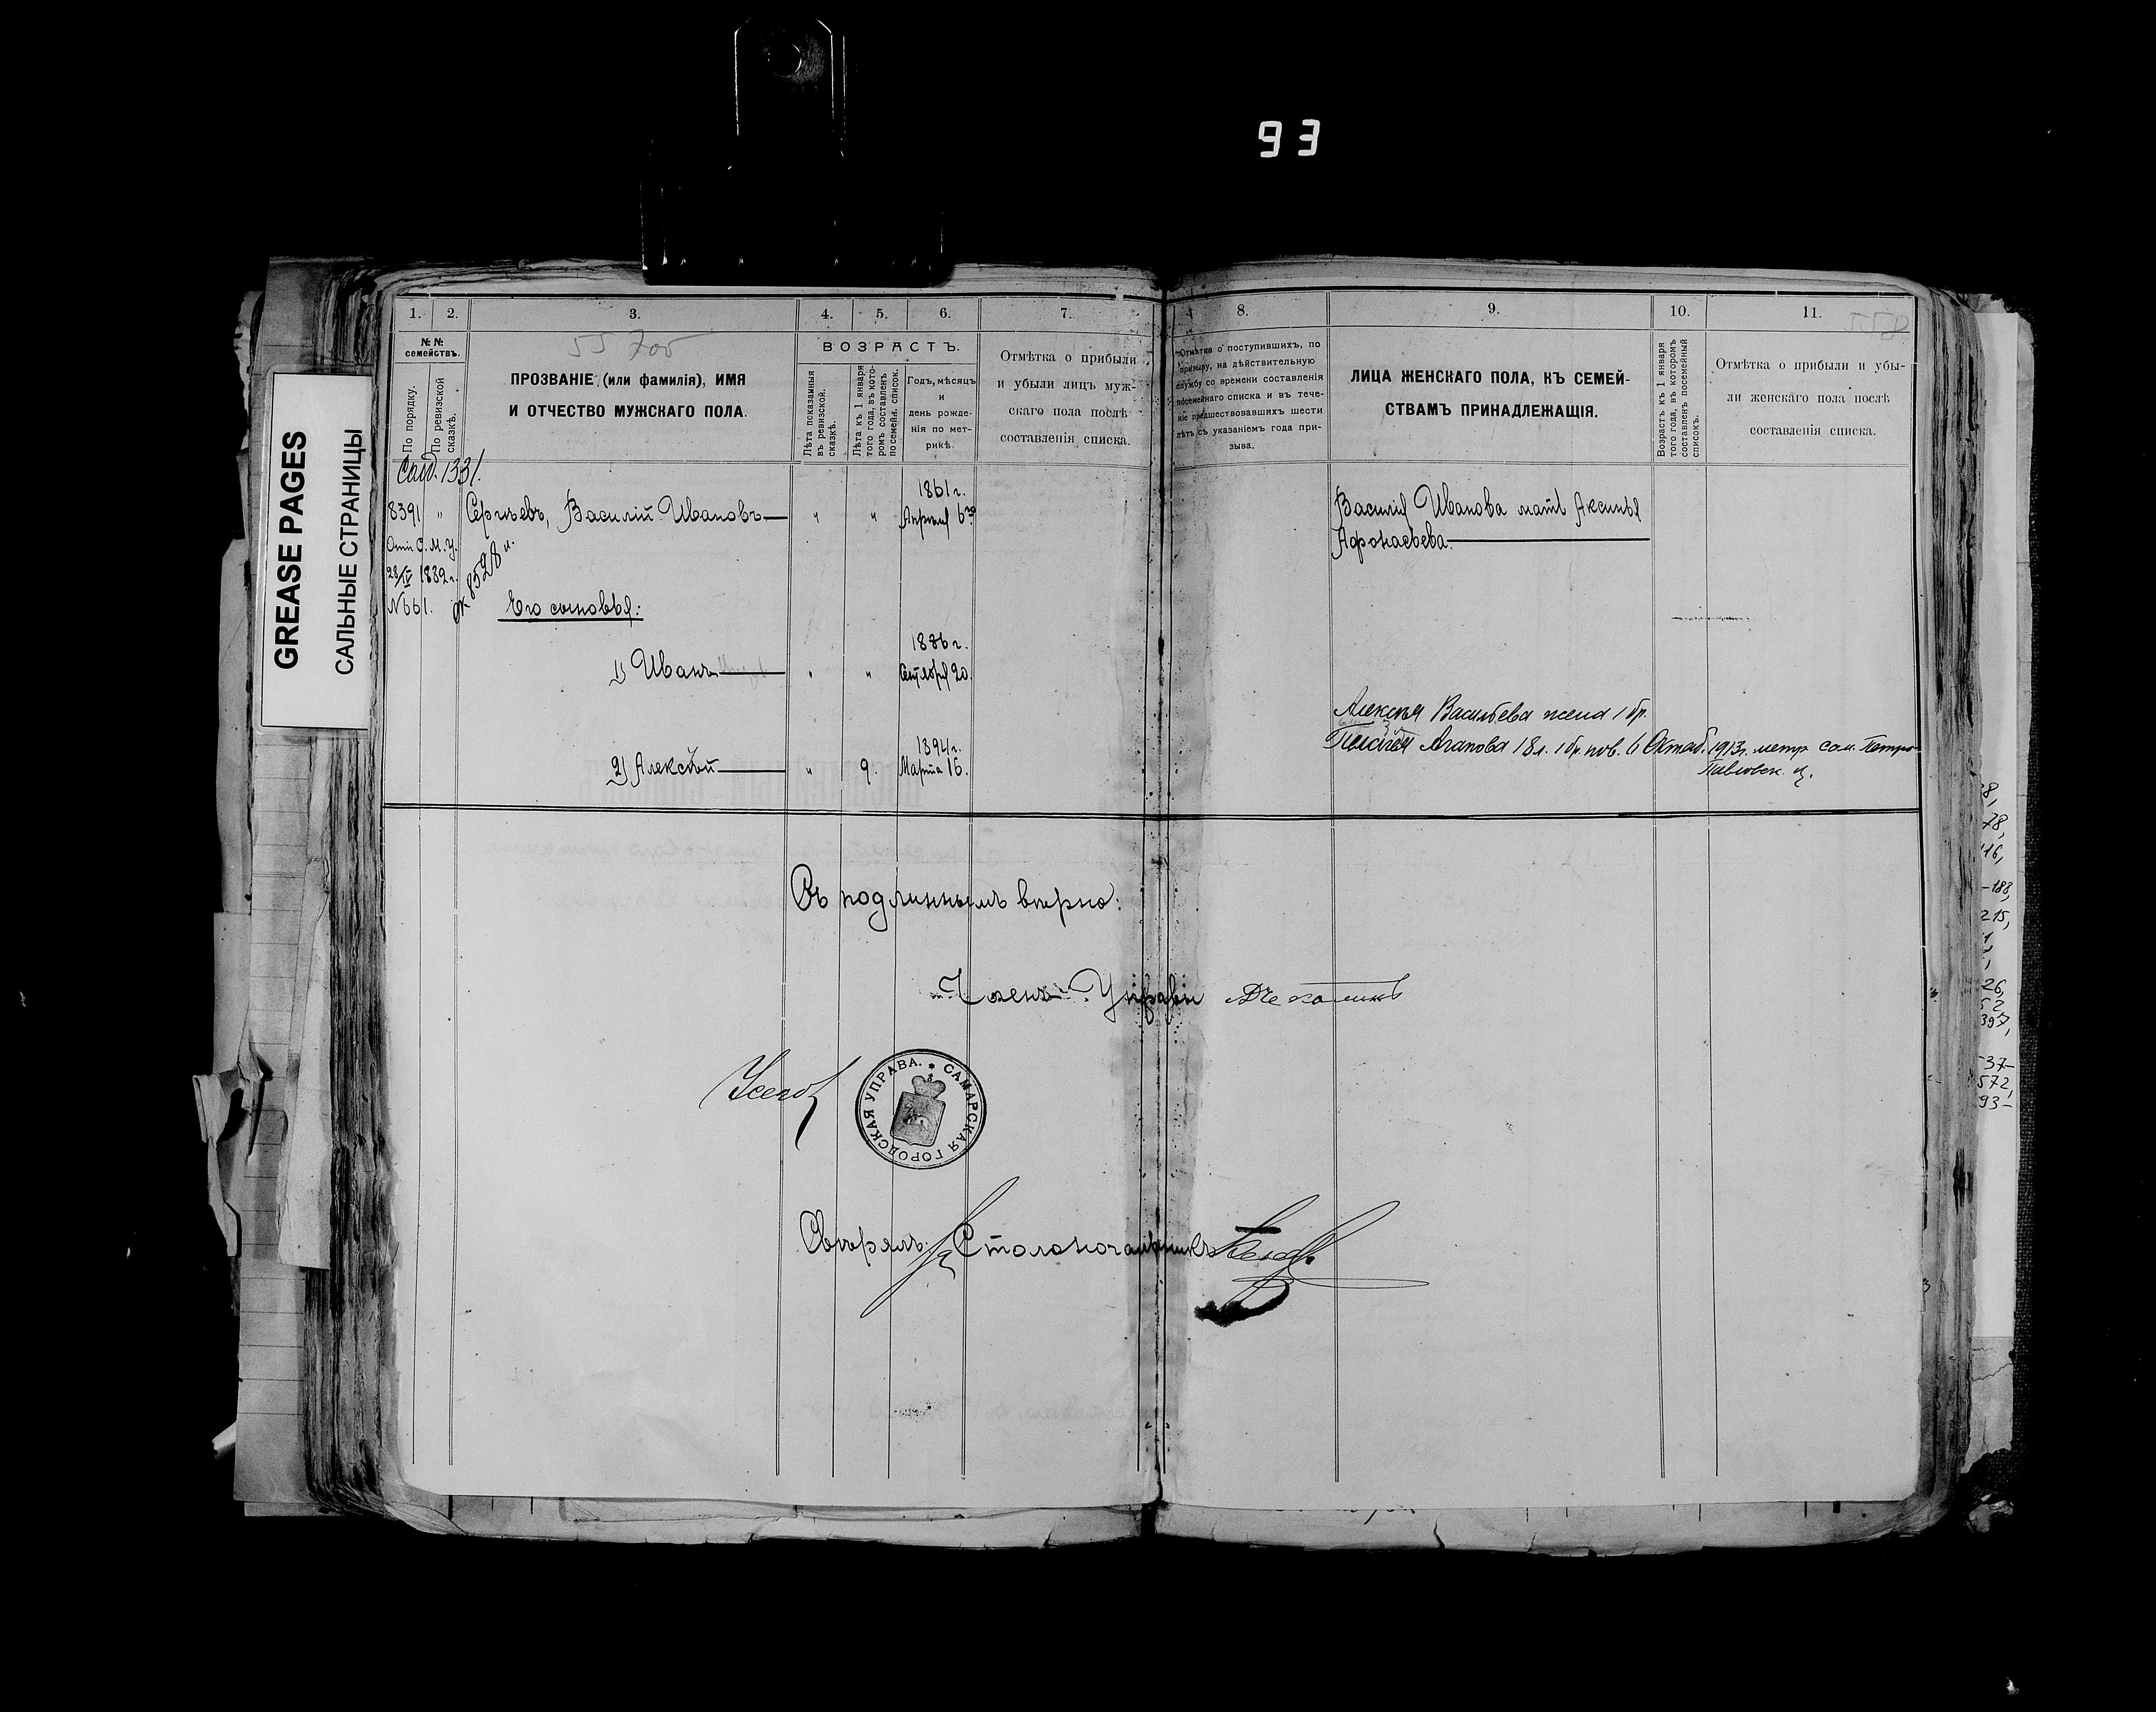 93
GREASE PAGES
САЛЬНЫЕ СТРАНИЦЫ
1. 2. 3. 4. 5. 6. 7. 8. 9. 10. 11.
№ №
семействъ.
По порядку.
По ревизской
сказкѣ.
ПРОЗВАНІЕ (или фамилія), ИМЯ
И ОТЧЕСТВО МУЖСКАГО ПОЛА.
ВОЗРАСТЪ.
Лѣта показанныя
въ ревизской.
сказкѣ.
Лѣта къ 1 января
того года, въ кото-
ромъ составленъ
посемейн. список.
Годъ, мѣсяцъ
и
день рожде-
нія по мет-
рикѣ.
Отмѣтка о прибыли
и убыли лицъ муж-
скаго пола послѣ
составленія списка.
Отмѣтка о поступившихъ, по
призыву, на дѣйствительную
службу со времени составленія
посемейнаго списка и въ тече-
ніе предшествовавшихъ шести
лѣтъ съ указаніемъ года при-
зыва.
ЛИЦА ЖЕНСКАГО ПОЛА, КЪ СЕМЕЙ-
СТВАМЪ ПРИНАДЛЕЖАЩІЯ.
Возрастъ къ 1 января
того года, въ которомъ
составленъ посемейный
списокъ.
Отмѣтка о прибыли и убы-
ли женскаго пола послѣ
составленія списка.
1331.
1861 г.
8391 " Сергѣевъ, Василій Ивановъ " " Апрѣля 6го
Василія Иванова мать Аксинья
Афонасьева
С. М. У.
1882 г.
№ 661. 8528
Его сыновья:
1886 г.
1) Иванъ " " Сентября 20.
1894 г.
2) Алексѣй " 9. Марта 16.
Алексѣя Васильева жена 1 бр.
Агапова 18 л. 1 бр. пов. 6 Октяб. 1913 г. метр. сам. Петро
Павловск. ц.
Съ подлиннымъ вѣрно:
Членъ Управы
САМАРСКАЯ ГОРОДСКАЯ УПРАВА.
Свѣрялъ: Столоначальникъ
78,
116,
-188,
215,
26,
52,
397,
-37-
572,
93-